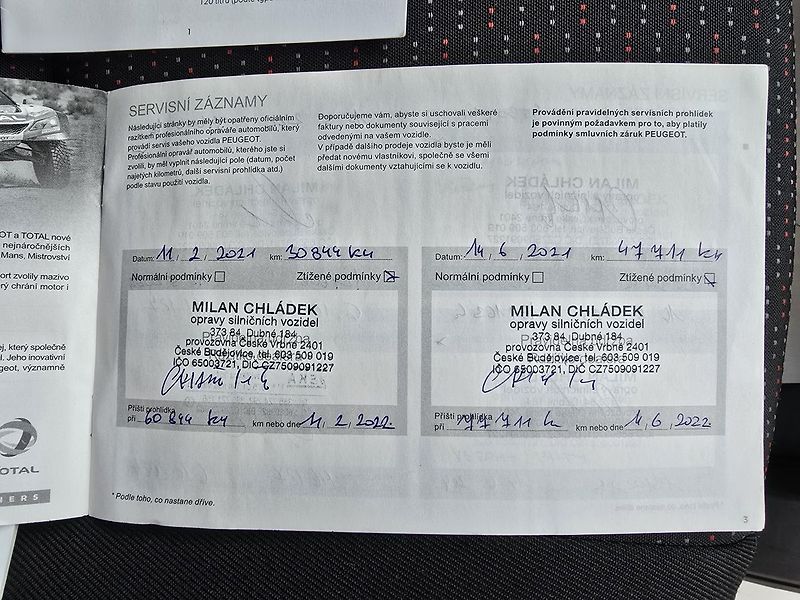 120 litrů (podle typu
1
SERVISNÍ ZÁZNAMY
Následující stránky by měly být opatřeny oficiálním
razítkem profesionálního opraváře automobilů, který
provádí servis vašeho vozidla PEUGEOT.
Profesionální opravář automobilů, kterého jste si
zvolili, by měl vyplnit následující pole (datum, počet
najetých kilometrů, další servisní prohlídka atd.)
podle stavu použití vozidla.
Doporučujeme vám, abyste si uschovali veškeré
faktury nebo dokumenty související s pracemi
odvedenými na vašem vozidle.
V případě dalšího prodeje vozidla byste je měli
předat novému vlastníkovi, společně se všemi
dalšími dokumenty vztahujícími se k vozidlu.
Provádění pravidelných servisních prohlídek
je povinným požadavkem pro to, aby platily
podmínky smluvních záruk PEUGEOT.
OT a TOTAL nové
nejnáročnějších
Mans, Mistrovství
ort zvolily mazivo
erý chrání motor i
ej, který společně
l. Jeho inovativní
geot, významně
TOTAL
NERS
Datum: 11, 2, 2021 km: 30 844 km
Normální podmínky Ztížené podmínky
MILAN CHLÁDEK
opravy silničních vozidel
373 84, Dubné 184
provozovna České Vrbné 2401
České Budějovice, tel. 603 509 019
IČO 65003721, DIČ CZ7509091227
Příští prohlídka
při 60 844 km km nebo dne 11, 2, 2022
Datum: 14, 6, 2021 km: 47 711 km
Normální podmínky Ztížené podmínky
MILAN CHLÁDEK
opravy silničních vozidel
373 84, Dubné 184
provozovna České Vrbné 2401
České Budějovice, tel. 603 509 019
IČO 65003721, DIČ CZ7509091227
Příští prohlídka
při 77 711 km nebo dne 14, 6, 2022
* Podle toho, co nastane dříve.
3